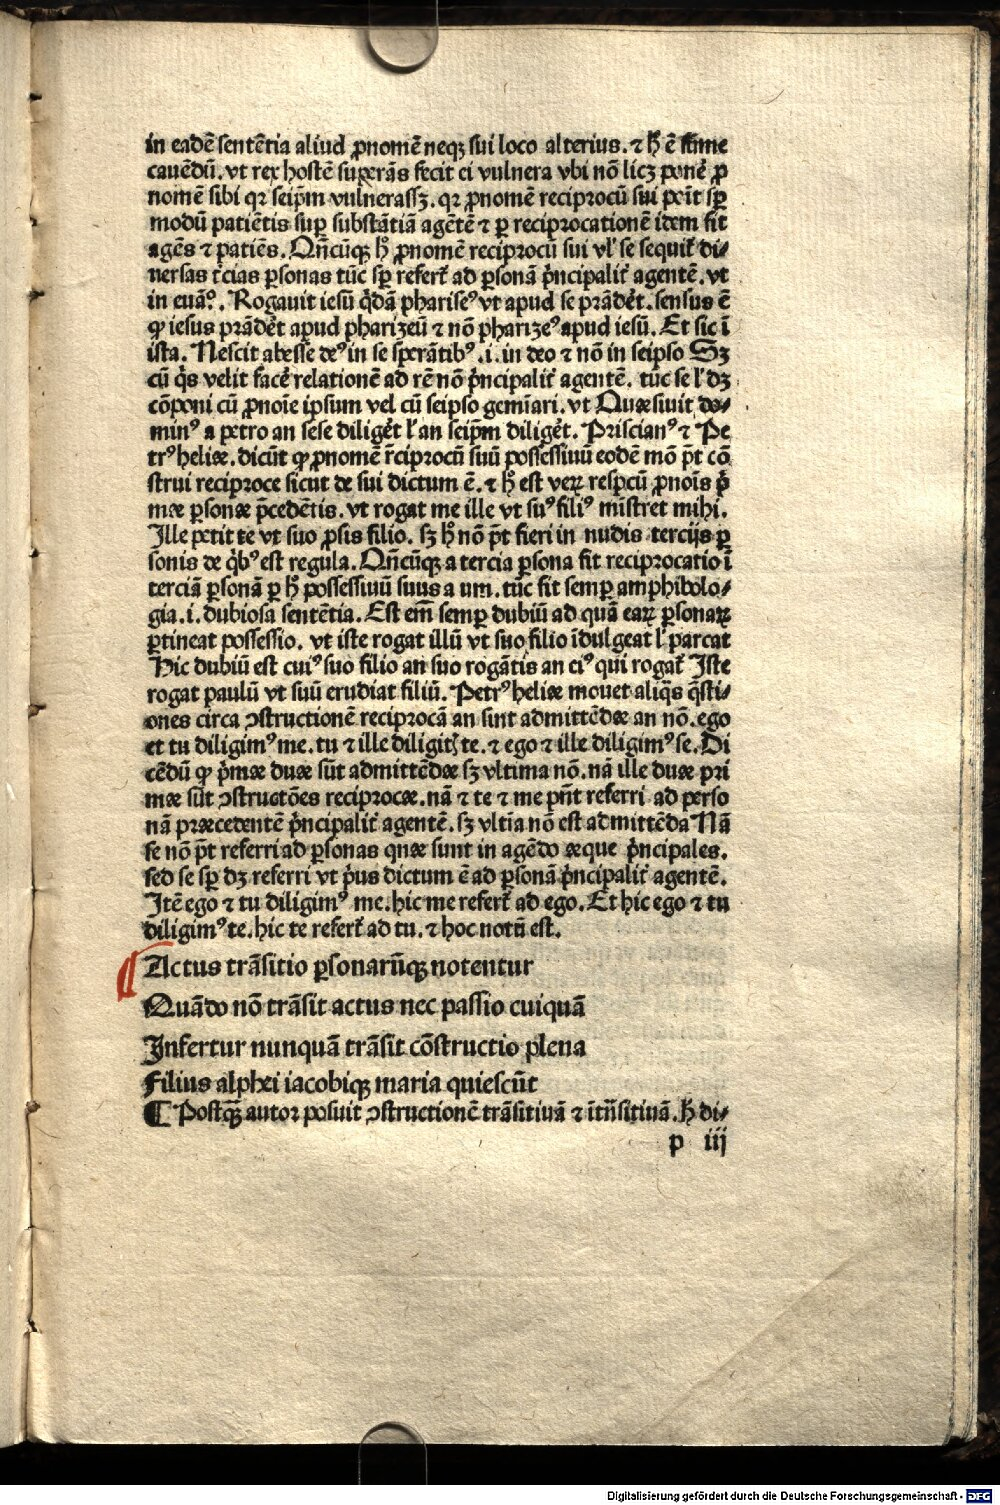 in eadē sentētia aliud ꝓnomē neqꝫ sui loco alterius. ⁊ hͦ ē summe
cauēdū. vt rex hostē suꝑās fecit ei vulnera vbi nō licꝫ ponē̓ ꝓ
nomē sibi qr seip̄m vulnerassꝫ. qr ꝓnomē reciprocū sui po̅it sꝑ
modū patiētis suꝑ substātiā agētē ⁊ ꝑ reciprocationē idem fit
agēs ⁊ patiēs. Qn̄cūqꝫ hͦ ꝓnomē reciprocū sui vl̓ se sequit᷑ di-
uersas tꝰcias ꝑsonas tūc sꝑ refert᷑ ad ꝑsonā p̓ncipalit᷑ agentē. vt
in euāꝰ. Rogauit iesū q̓dā phariseꝰ vt apud se prādēt᷑. sensus ē
ꝙ iesus prādēt᷑ apud pharizeū ⁊ nō pharizeꝰ apud iesū. Et sic ī
ista. Nescit abesse deꝰ in se sperātibꝰ .i. in deo ⁊ nō in seipso Sꝫ
cū q̓s velit facē̓ relationē ad rē nō p̓ncipalit᷑ agentē. tūc se l̓ dꝫ
cōponi cū ꝓnoīe ipsum vel cū seipso gemīari. vt Quæsiuit do-
minꝰ a petro an sese diligēt᷑ l̓ an seip̄m diligēt᷑. Priscianꝰ ⁊ Pe
trꝰ heliæ. dicūt ꝙ ꝓnomē r̄ciprocū suū possessiuū eodē mō p̄t cō
strui reciproce sicut de sui dictum ē. ⁊ hͦ est veꝝ resp̄cū ꝓnoīs p̓
mæ ꝑsonæ p̄cedētis. vt rogat me ille vt suꝰ filiꝰ mīstret mihi.
Ille petit te vt suo ꝓsis filio. sꝫ hͦ nō p̄t fieri in nudis tercijs ꝑ
sonis de q̓bꝰ est regula. Qn̄cūqꝫ a tercia ꝑsona fit reciprocatio ī
terciā ꝑsonā ꝑ hͦ possessiuū suus a um. tūc fit semꝑ amphibolo-
gia .i. dubiosa sentētia. Est em̄ semꝑ dubiū ad quā eaꝝ ꝑsonaꝝ
ꝑtineat possessio. vt iste rogat illū vt suo filio īdulgeat l̓ parcat
Hic dubiū est cuiꝰ suo filio an suo rogātis an eiꝰ qui rogat᷑ Iste
rogat paulū vt suū erudiat filiū. Petrꝰ heliæ mouet aliq̄s q̄sti-
ones circa ↄstructionē reciprocā an sint admittēdæ an nō. ego
et tu diligimꝰ me. tu ⁊ ille diligitꝭ te. ⁊ ego ⁊ ille diligimꝰ se. Di
cēdū ꝙ p̓mæ duæ sūt admittēdæ sꝫ vltima nō. nā ille duæ pri
mæ sūt ↄstructōes reciprocæ. nā ⁊ te ⁊ me pn̄t referri ad perso
nā præcedentē p̓ncipalit᷑ agentē. sꝫ vltīa nō est admittēda Nā
se nō p̄t referri ad ꝑsonas quæ sunt in agēdo æque p̓ncipales.
sed se sꝑ dꝫ referri vt p̓us dictum ē ad ꝑsonā p̓ncipalit᷑ agentē.
Itē ego ⁊ tu diligimꝰ me. hic me refert᷑ ad ego. Et hic ego ⁊ tu
diligimꝰ te. hic te refert᷑ ad tu. ⁊ hoc notū est.
Actus trāsitio ꝑsonarūqꝫ notentur
Quādo nō trāsit actus nec passio cuiquā
Infertur nunquā trāsit cōstructio plena
Filius alphei iacobiqꝫ maria quiescūt
¶ Postqꝫ̄ autor posuit ↄstructionē trāsitiuā ⁊ ītrāsitiuā. hͦ di-
p iij
Digitalisierung gefördert durch die Deutsche Forschungsgemeinschaft - DFG